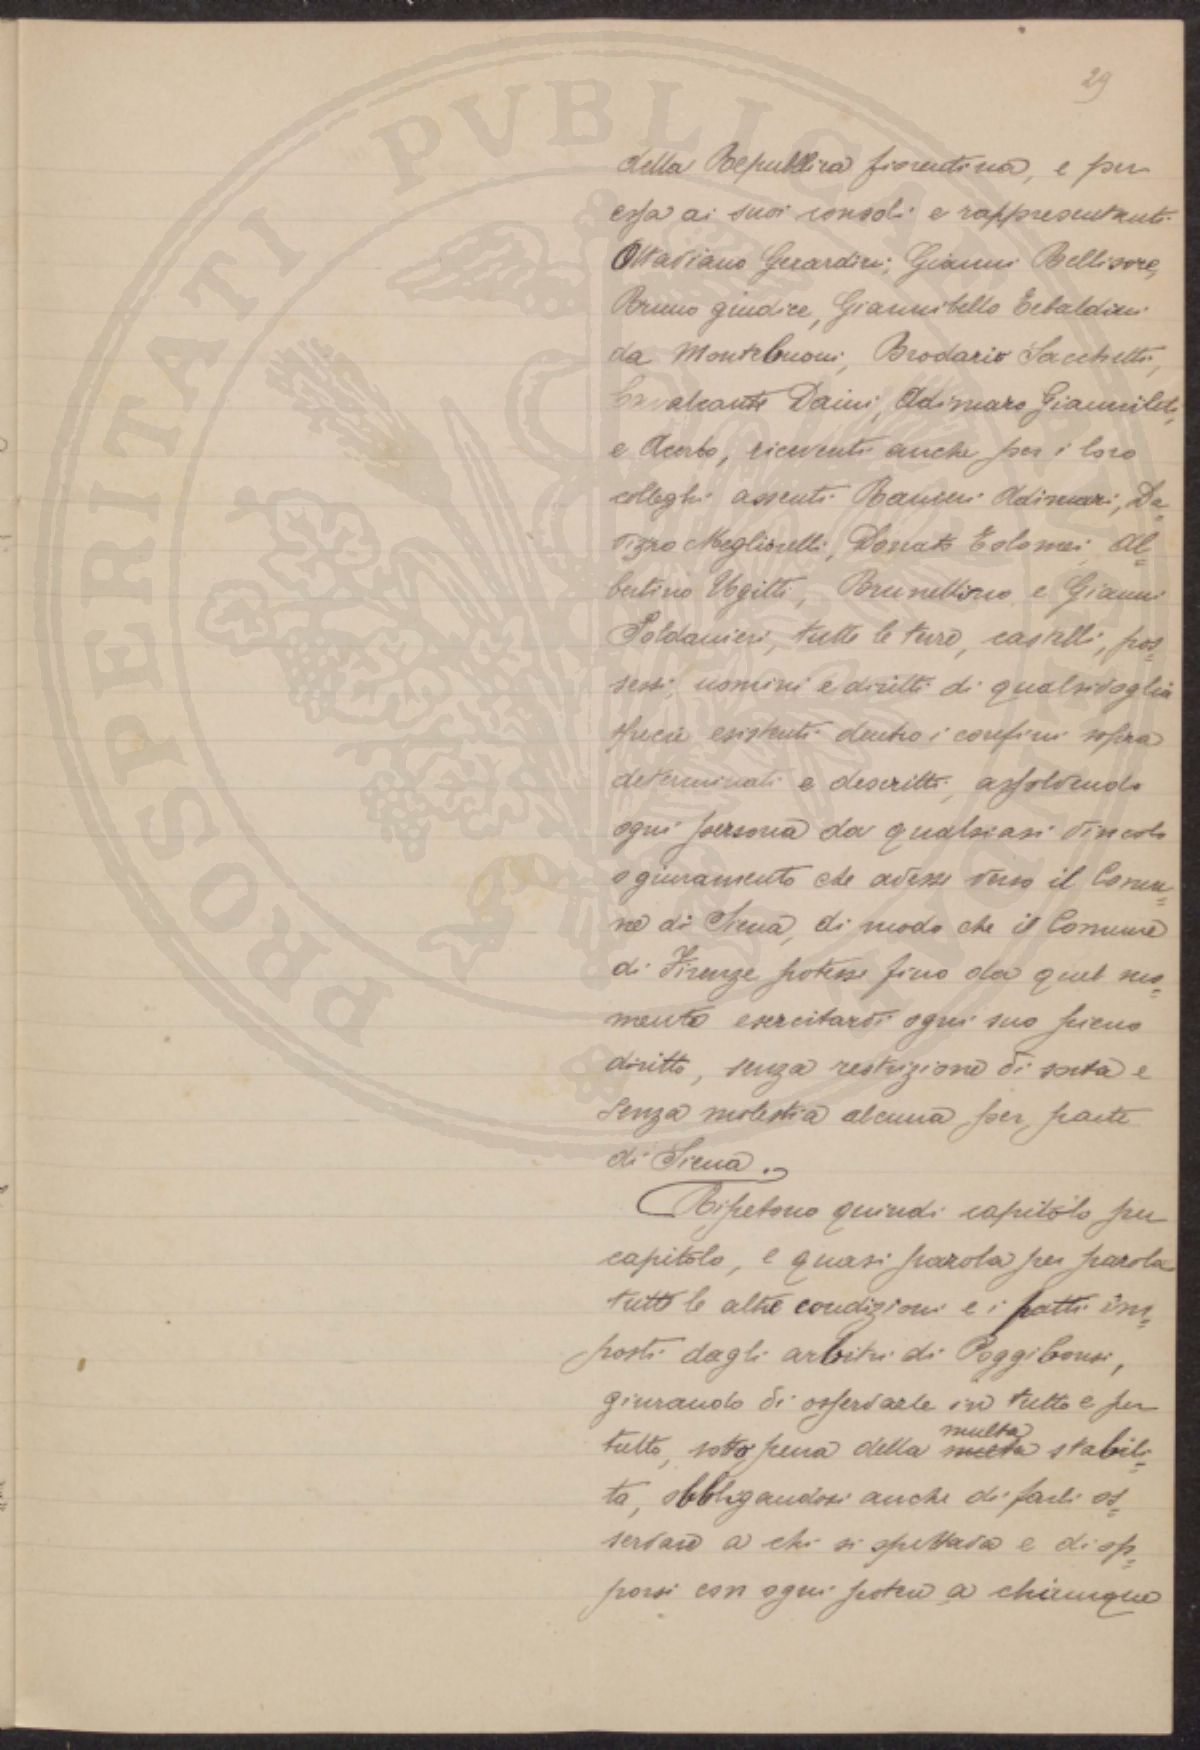 29
della Repubblica fiorentina, e per
essa ai suoi consoli e rappresentanti
Ottaviano Gerardini, Gianni Bellisore,
Bruno giudice, Giannibello Tebaldini
da Montebuoni, Brodario Sacchetti,
Cavalcante Daini, Adimaro Giannibeti,
e Acerbo, riceventi anche per i loro
colleghi assenti Ranieri Adimari, Da=
vizzo Megliorelli, Donato Tolomei, Al=
bertino Ugitti, Brunellino e Gianni
Soldanieri, tutte le terre, castelli, pos=
sessi, uomini e diritti di qualsivoglia
specie esistenti dentro i confini sopra
determinati e descritti, assolvendo
ogni persona da qualsiasi vincolo
o giuramento che avesse verso il Comu=
ne di Siena, di modo che il Comune
di Firenze potesse fino da quel mo=
mento esercitarvi ogni suo pieno
diritto, senza restrizione di sorta e
senza molestia alcuna per parte
di Siena.
Ripetono quindi capitolo per
capitolo, e quasi parola per parola
tutte le altre condizioni e i patti im=
posti dagli arbitri di Poggibonsi,
giurando di osservarle in tutto e per
tutto, sotto pena della multa stabili=
ta, obbligandosi anche di farli os=
servare a chi si spettava e di op=
porsi con ogni potere a chiunque
PROSPERITATI PVBLICAE